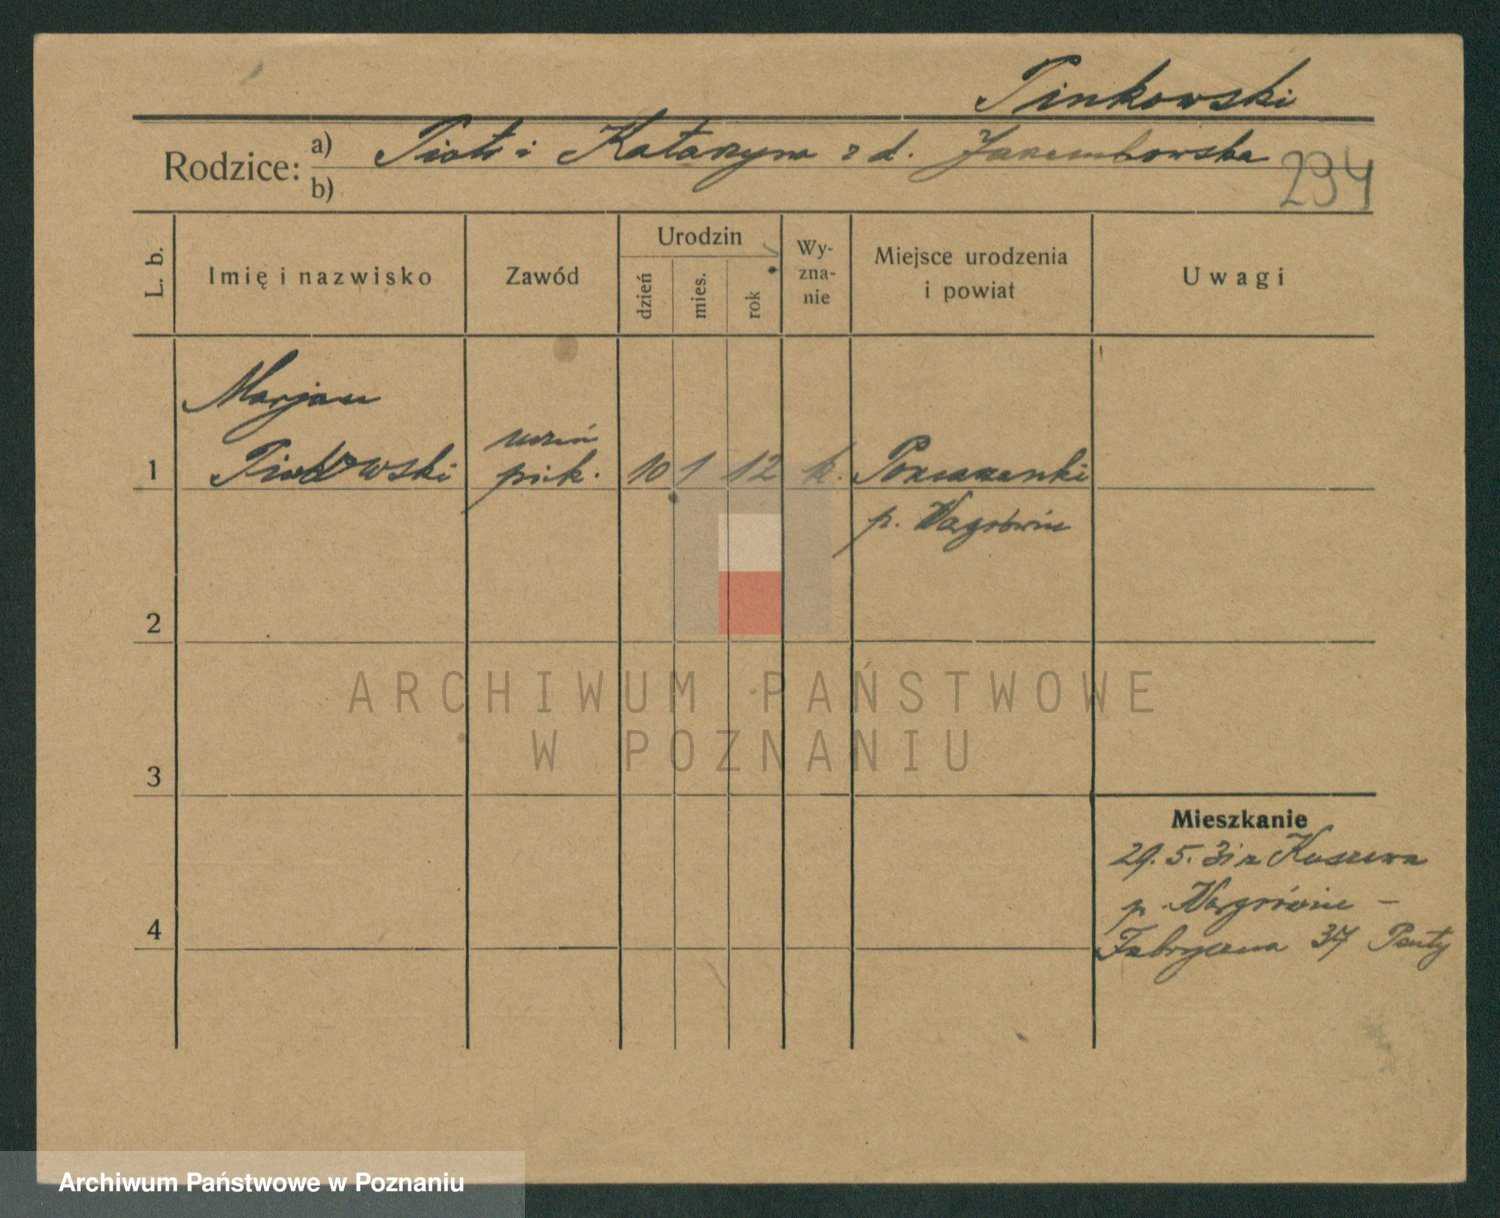 Pinkowski
Rodzice: a) Piotr i Katarzyna z d. Jarembowska
b)
234
L. b. Imię i nazwisko Zawód Urodzin dzień mies. rok Wy-zna-nie Miejsce urodzenia i powiat Uwagi
Marjan
uczeń
1 Pinkowski piek. 10 1 12 k.
p. Wągrówiec
2
ARCHIWUM PAŃSTWOWE
W POZNANIU
3
Mieszkanie
29. 5. 31 z Kuszewa
p. Wągrówiec –
4 Fabryczna 37 Party
Archiwum Państwowe w Poznaniu